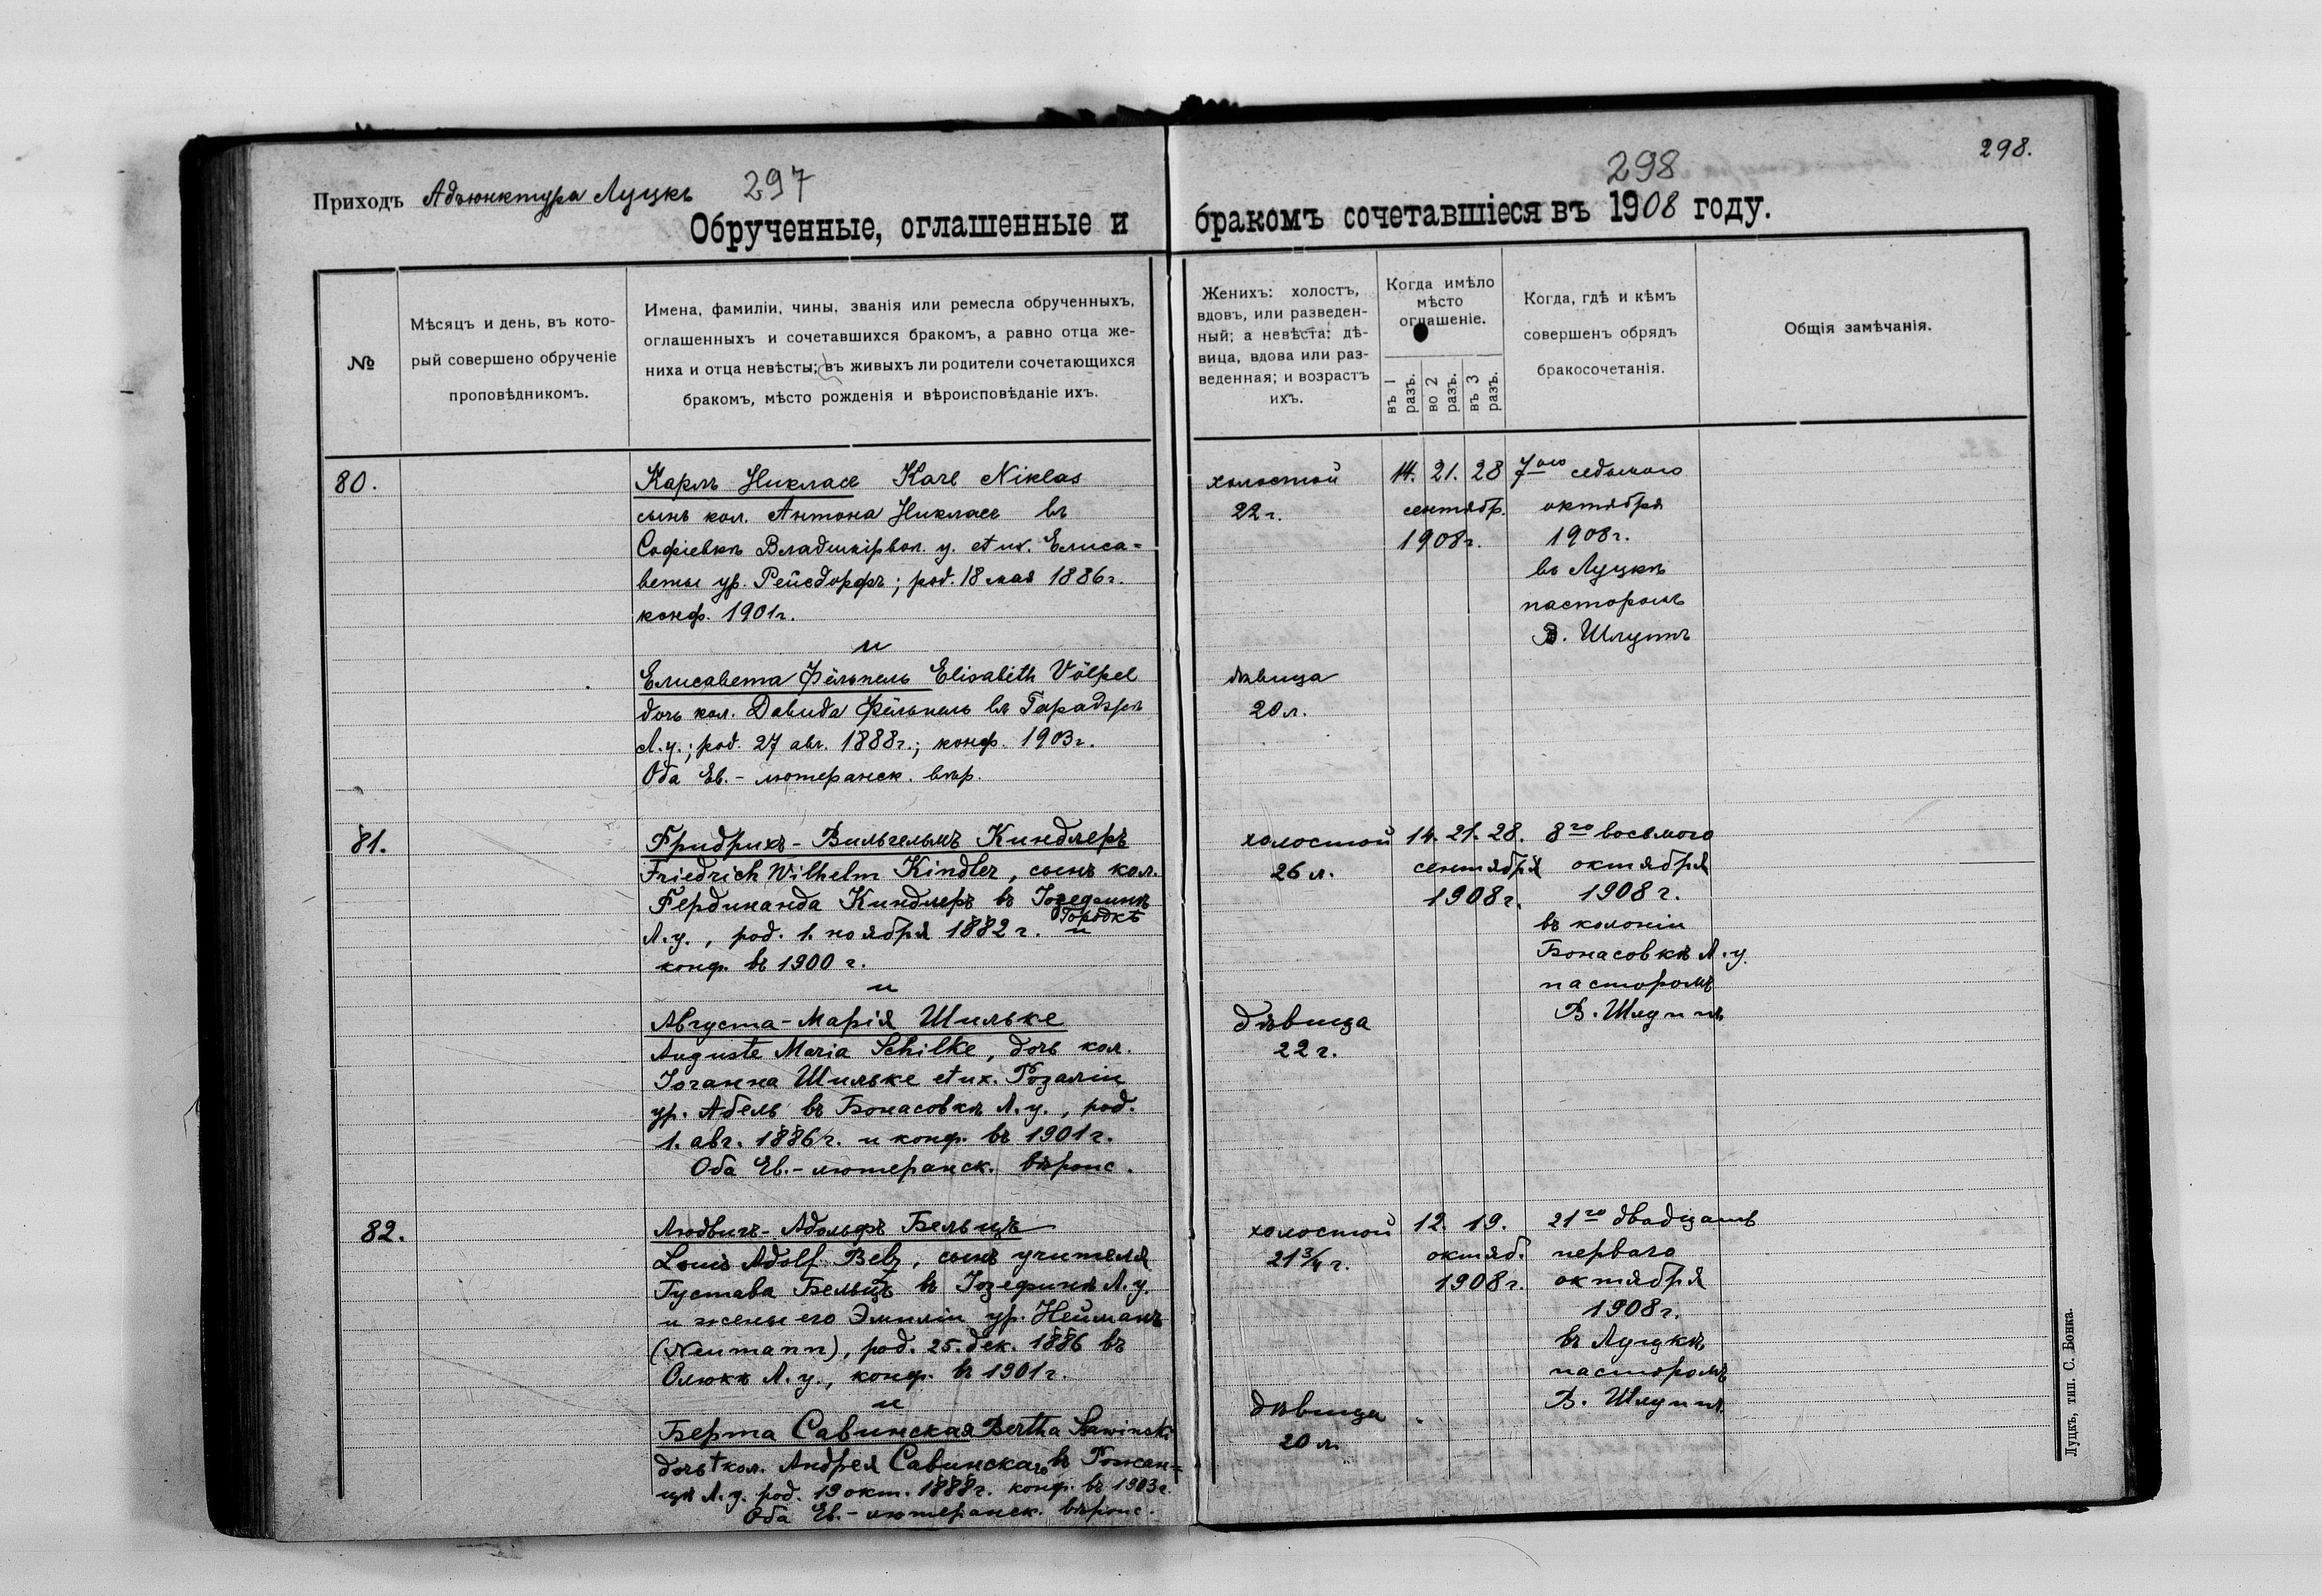 Приходъ Адъюнктура Луцкъ 297
Обрученные, оглашенные и
№
Мѣсяцъ и день, въ кото-
рый совершено обрученіе
проповѣдникомъ.
Имена, фамиліи, чины, званія или ремесла обрученныхъ,
оглашенныхъ и сочетавшихся бракомъ, а равно отца же-
ниха и отца невѣсты; въ живыхъ ли родители сочетающихся
бракомъ, мѣсто рожденія и вѣроисповѣданіе ихъ.
80.
Карлъ Никласъ Karl Niklas
сынъ кол. Антона Никласъ въ
Софіевкѣ Владимірвол. у. et ux. Елиса-
веты ур. Рейсдорфъ; род. 18 мая 1886 г.
конф. 1901 г.
и
Елисавета Фёльпель Elisabeth Völpel
дочь кол. Давида Фёльпель въ
Л.у.; род. 27 авг. 1888 г.; конф. 1903 г.
Оба Ев.-лютеранск. вѣр.
81.
Фридрихъ-Вильгельмъ Киндлеръ
Friedrich Wilhelm Kindler, сынъ кол.
Фердинанда Киндлеръ въ Іозефинѣ
Л.у., род. 1. ноября 1882 г. Городкѣ и
конф. въ 1900 г.
и
Августа-Марія Шильке
Auguste Maria Schilke, дочь кол.
Іоганна Шильке et ux. Розаліи
ур. Абель въ Бонасовкѣ Л.у., род.
1. авг. 1886 г. и конф. въ 1901 г.
Оба Ев.-лютеранск. вѣроис.
82.
Людвигъ-Адольфъ Бельцъ
Louis Adolf Belz, сынъ учителя
Густава Бельцъ въ Іозефинѣ Л.у.
и жены его Эмиліи ур. Нейманъ
(Neumann), род. 25. дек. 1886 въ
Олыкѣ Л.у., конф. въ 1901 г.
и
Берта Савинская Bertha Sawinski
дочь † кол. Андрея Савинскаго въ Рожан-
цѣ Л.у. род. 19 окт. 1888 г. конф. въ 1903 г.
Оба Ев.-лютеранск. вѣроис.
298
298.
бракомъ сочетавшіеся въ 1908 году.
Женихъ: холостъ,
вдовъ, или разведен-
ный; а невѣста: дѣ-
вица, вдова или раз-
веденная; и возрастъ
ихъ.
Когда имѣло
мѣсто
оглашеніе.
въ 1 разъ.
во 2 разъ.
въ 3 разъ.
Когда, гдѣ и кѣмъ
совершенъ обрядъ
бракосочетанія.
Общія замѣчанія.
холостой 14. 21. 28 7ого седьмого
22 г. сентябр. октября
1908 г. 1908 г.
въ Луцкѣ
пасторомъ
В. Шлуппъ
дѣвица
20 л.
холостой 14. 21. 28. 8го восьмого
26 л. сентября октября
1908 г. 1908 г.
въ колоніи
Бонасовкѣ Л.у.
пасторомъ
В. Шлуппъ
дѣвица
22 г.
холостой 12. 19. 21го двадцать
21 3/4 г. октяб. перваго
1908 г. октября
1908 г.
въ Луцкѣ
пасторомъ
В. Шлуппъ.
дѣвица
20 л.
Луцкъ, тип. С. Бонка.